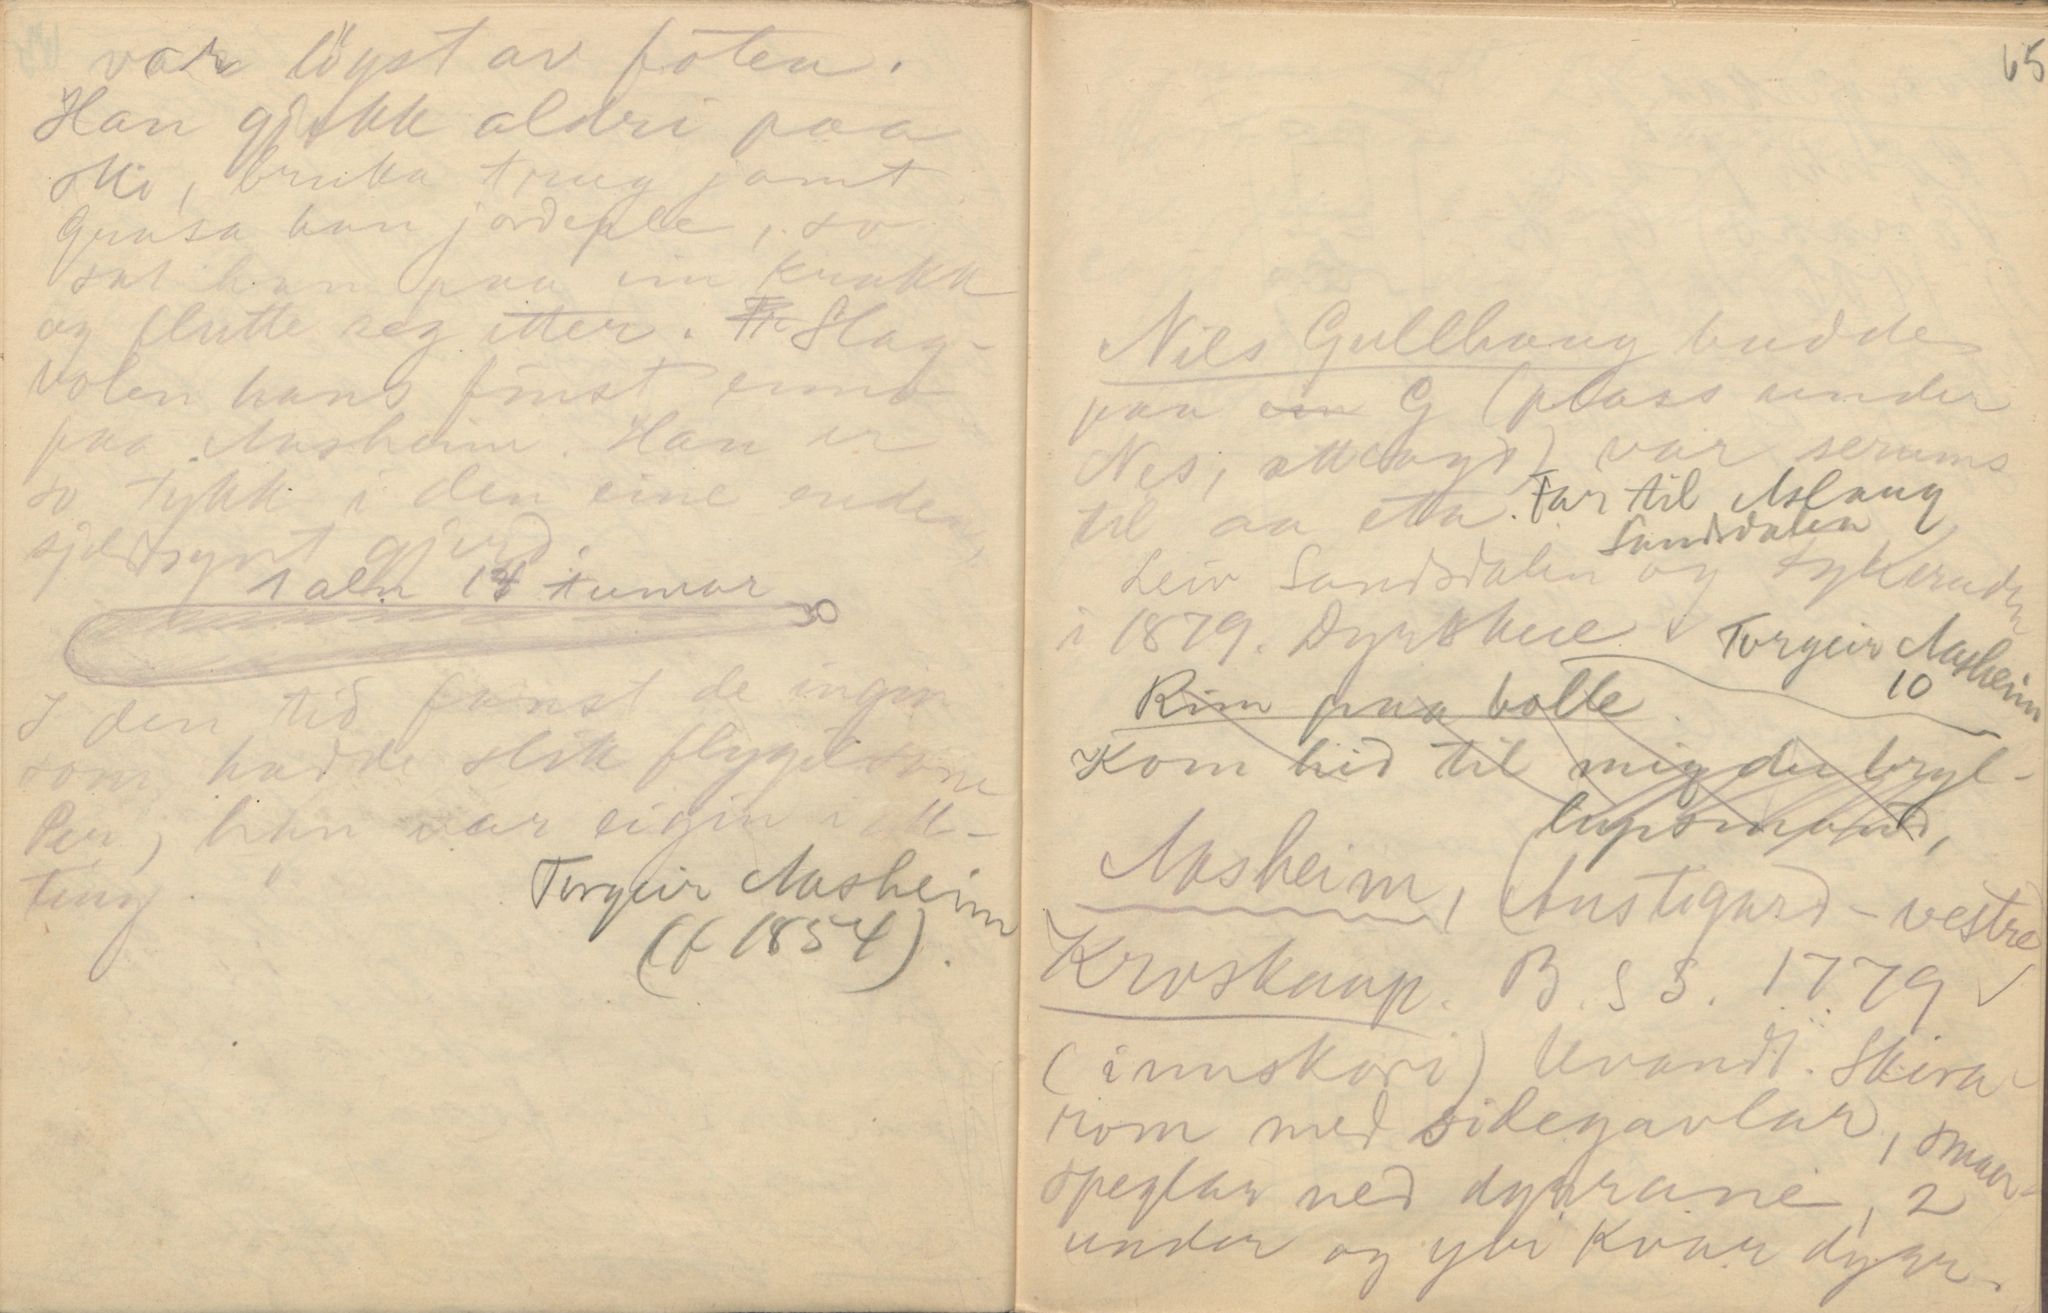 var løyst av foten.
Han gjekk aldri paa
ski, bruka trug jamt
Grasa han jordeple, so
sat han paa ein krakk
og flutte seg etter. Slag-
volen hans finst enno
paa Aasheim. Han er
so tykk i den eine enden,
sjeldsynt gjerd.
1 aln 14 tumar
I den tid fanst de ingin
som hadde slik flygel som
Per, han var eigin i alt-
ting.
Torgeir Aasheim
(f 1854).
65
Nils Gullhaug budde
paa G (plass under
Nes, ) var serams
til aa eta. Far til Aslaug
Sandsdalen
Leiv Sandsdalen og
i 1879. Dyrskue
Torgeir Aasheim
10
Rim paa bolle
Kom hid til mig du bryl-
lupsmand,
Aasheim, Austigard - vestre
Kroskaap. B. S S. 1779
(innskori) Uvandt. Skira-
rom med sidegavlar, smaa-
speglar ned dyrrane, 2
under og yvi kvar dyrr.